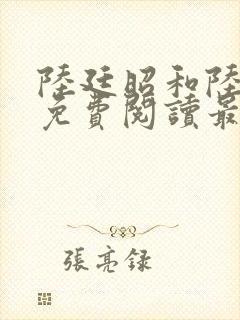 陸廷昭和陸
免費閱讀最
張亮録